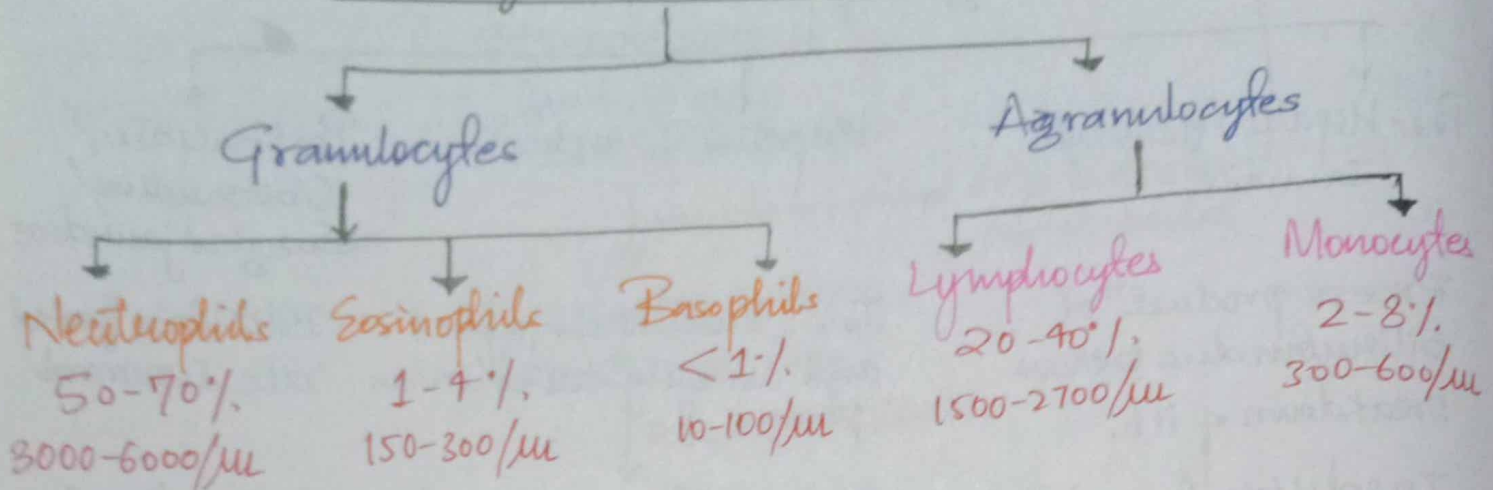 Granulocytes
Agranulocytes
Neutrophils
50-70%.
3000-6000/µl
Eosinophils
1-4%.
150-300/µl
Basophils
<1%.
10-100/µl
Lymphocytes
20-40%.
1500-2700/µl
Monocytes
2-8%.
300-600/µl